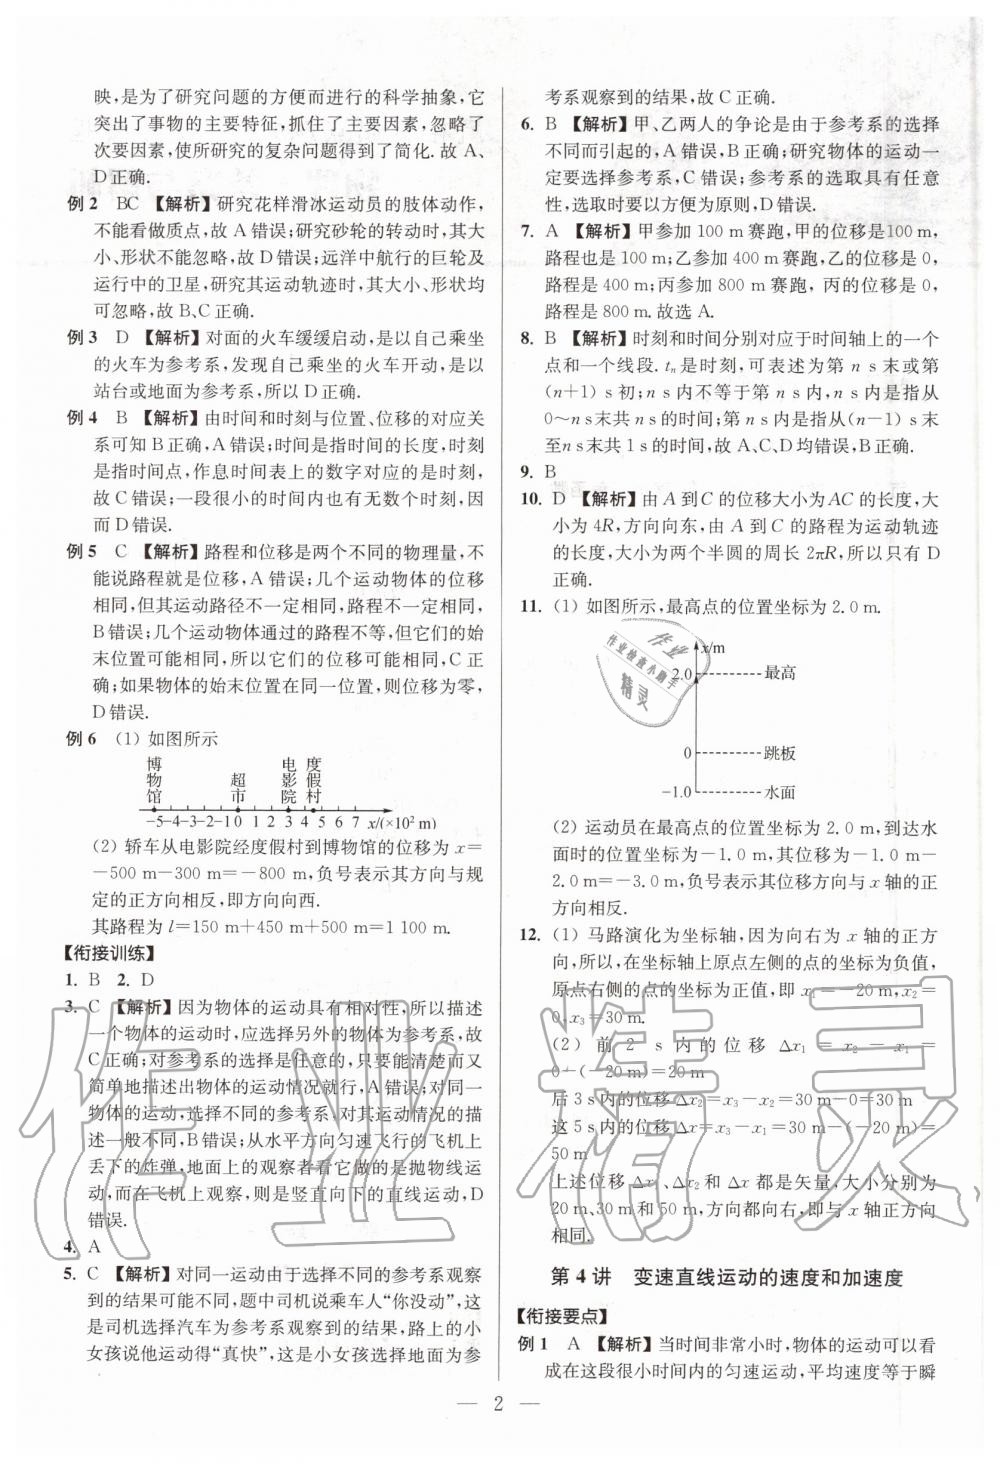 映,是为了研究问题的方便而进行的科学抽象,它
突出了事物的主要特征,抓住了主要因素,忽略了
次要因素,使所研究的复杂问题得到了简化. 故 A、
D 正确.
例 2 BC 【解析】研究花样滑冰运动员的肢体动作,
不能看做质点,故 A 错误;研究砂轮的转动时,其大
小、形状不能忽略,故 D 错误;远洋中航行的巨轮及
运行中的卫星,研究其运动轨迹时,其大小、形状均
可忽略,故 B、C 正确.
例 3 D 【解析】对面的火车缓缓启动,是以自己乘坐
的火车为参考系,发现自己乘坐的火车开动,是以
站台或地面为参考系,所以 D 正确.
例 4 B 【解析】由时间和时刻与位置、位移的对应关
系可知 B 正确,A 错误;时间是指时间的长度,时刻
是指时间点,作息时间表上的数字对应的是时刻,
故 C 错误;一段很小的时间内也有无数个时刻,因
而 D 错误.
例 5 C 【解析】路程和位移是两个不同的物理量,不
能说路程就是位移,A 错误;几个运动物体的位移
相同,但其运动路径不一定相同,路程不一定相同,
B 错误;几个运动物体通过的路程不等,但它们的始
末位置可能相同,所以它们的位移可能相同,C 正
确;如果物体的始末位置在同一位置,则位移为零,
D 错误.
例 6 (1) 如图所示
博物馆 超市 电影院 度假村
-5-4-3-2-1 0 1 2 3 4 5 6 7 x/(×10² m)
(2) 轿车从电影院经度假村到博物馆的位移为 x=
-500 m-300 m=-800 m,负号表示其方向与规
定的正方向相反,即方向向西.
其路程为 l=150 m+450 m+500 m=1 100 m.
【衔接训练】
1. B 2. D
3. C 【解析】因为物体的运动具有相对性,所以描述
一个物体的运动时,应选择另外的物体为参考系,故
C 正确;对参考系的选择是任意的,只要能清楚而又
简单地描述出物体的运动情况就行,A 错误;对同一
物体的运动,选择不同的参考系,对其运动情况的描
述一般不同,B 错误;从水平方向匀速飞行的飞机上
丢下的炸弹,地面上的观察者看它做的是抛物线运
动,而在飞机上观察,则是竖直向下的直线运动,D
错误.
4. A
5. C 【解析】对同一运动由于选择不同的参考系观察
到的结果可能不同,题中司机说乘车人“你没动”,这
是司机选择汽车为参考系观察到的结果,路上的小
女孩说他运动得“真快”,这是小女孩选择地面为参
考系观察到的结果,故 C 正确.
6. B 【解析】甲、乙两人的争论是由于参考系的选择
不同而引起的,A 错误,B 正确;研究物体的运动一
定要选择参考系,C 错误;参考系的选取具有任意
性,选取时要以方便为原则,D 错误.
7. A 【解析】甲参加 100 m 赛跑,甲的位移是100 m,
路程也是 100 m;乙参加 400 m 赛跑,乙的位移是 0,
路程是 400 m;丙参加 800 m 赛跑,丙的位移是 0,
路程是 800 m. 故选 A.
8. B 【解析】时刻和时间分别对应于时间轴上的一个
点和一个线段. tₙ是时刻,可表述为第 n s 末或第
(n+1) s 初;n s 内不等于第 n s 内,n s 内是指从
0～n s末共 n s 的时间;第 n s 内是指从(n-1) s 末
至n s 末共 1 s 的时间,故 A、C、D 均错误,B 正确.
9. B
10. D 【解析】由 A 到 C 的位移大小为 AC 的长度,大
小为 4R,方向向东,由 A 到 C 的路程为运动轨迹
的长度,大小为两个半圆的周长 2πR,所以只有 D
正确.
11. (1) 如图所示,最高点的位置坐标为 2.0 m.
x/m
2.0 最高
0 跳板
-1.0 水面
(2) 运动员在最高点的位置坐标为 2.0 m,到达水
面时的位置坐标为-1.0 m,其位移为-1.0 m-
2.0 m=-3.0 m,负号表示其位移方向与 x 轴的正
方向相反.
12. (1) 马路演化为坐标轴,因为向右为 x 轴的正方
向,所以,在坐标轴上原点左侧的点的坐标为负值,
原点右侧的点的坐标为正值,即 x₁=-20 m,x₂=
0,x₃=30 m.
(2) 前 2 s 内的位移 Δx₁ = x₂ - x₁ =
0-(-20 m)=20 m
后 3 s内的位移 Δx₂=x₃-x₂=30 m-0=30 m
这 5 s内的位移 Δx=x₃-x₁=30 m-(-20 m)=
50 m
上述位移 Δx₁、Δx₂ 和 Δx 都是矢量,大小分别为
20 m、30 m 和 50 m,方向都向右,即与 x 轴正方向
相同.
第 4 讲 变速直线运动的速度和加速度
【衔接要点】
例 1 A 【解析】当时间非常小时,物体的运动可以看
成在这段很小时间内的匀速运动,平均速度等于瞬
— 2 —
作业
作业检查小助手
精灵
作业精灵